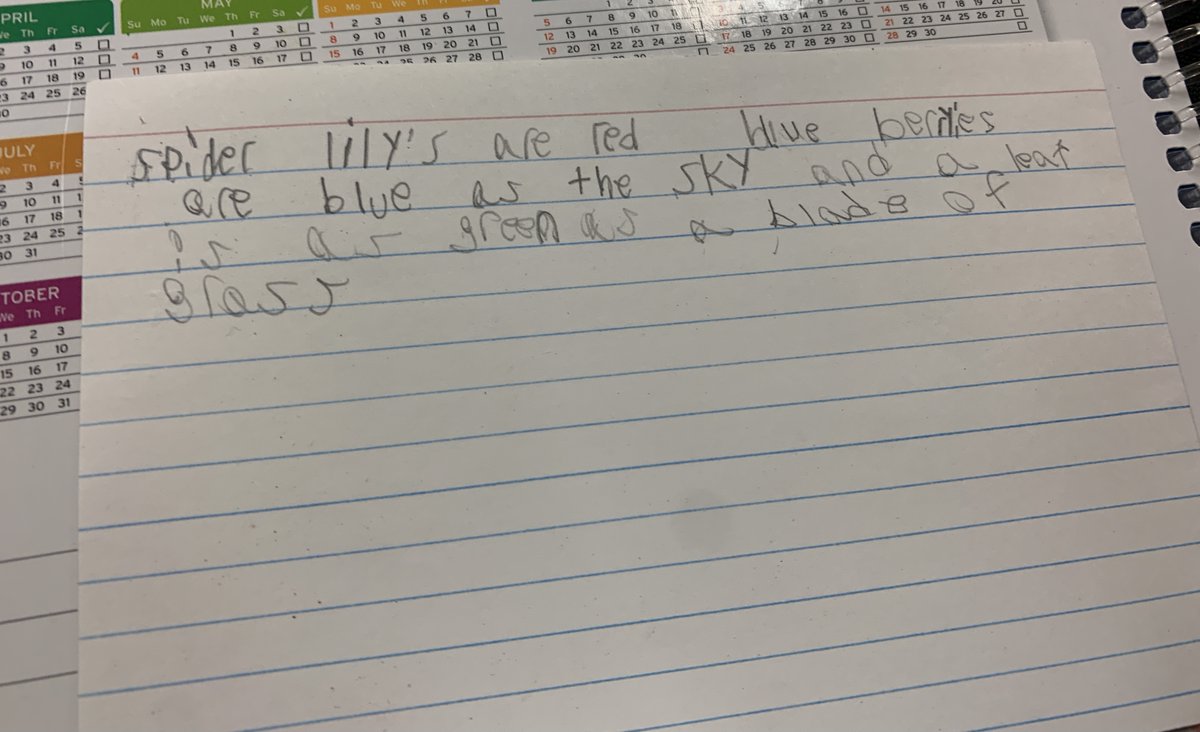 PRIL
We Th Fr Sa
2 3 4 5
9 10 11 12
6 17 18 19
23 24 25 26
30
MAY
Su Mo Tu We Th Fr Sa
1 2 3
4 5 6 7 8 9 10
11 12 13 14 15 16 17
Su Mo Tu We Th Fr Sa
1 2 3 4 5 6 7
8 9 10 11 12 13 14
15 16 17 18 19 20 21
25 26 27 28
5 6 7 8 9 10 11
12 13 14 15 16 17 18
19 20 21 22 23 24 25
10 11 12 13 14 15 16
17 18 19 20 21 22 23
24 25 26 27 28 29 30
14 15 16 17 18 19 20
21 22 23 24 25 26 27
28 29 30
JULY
We Th Fr S
2 3 4 5
9 10 11 1
16 17 18 1
23 24 25 2
30 31
TOBER
We Th Fr
1 2 3
8 9 10
15 16 17
22 23 24
29 30 31
spider lily's are red blue berries
are blue as the sky and a leaf
is as green as a blade of
grass